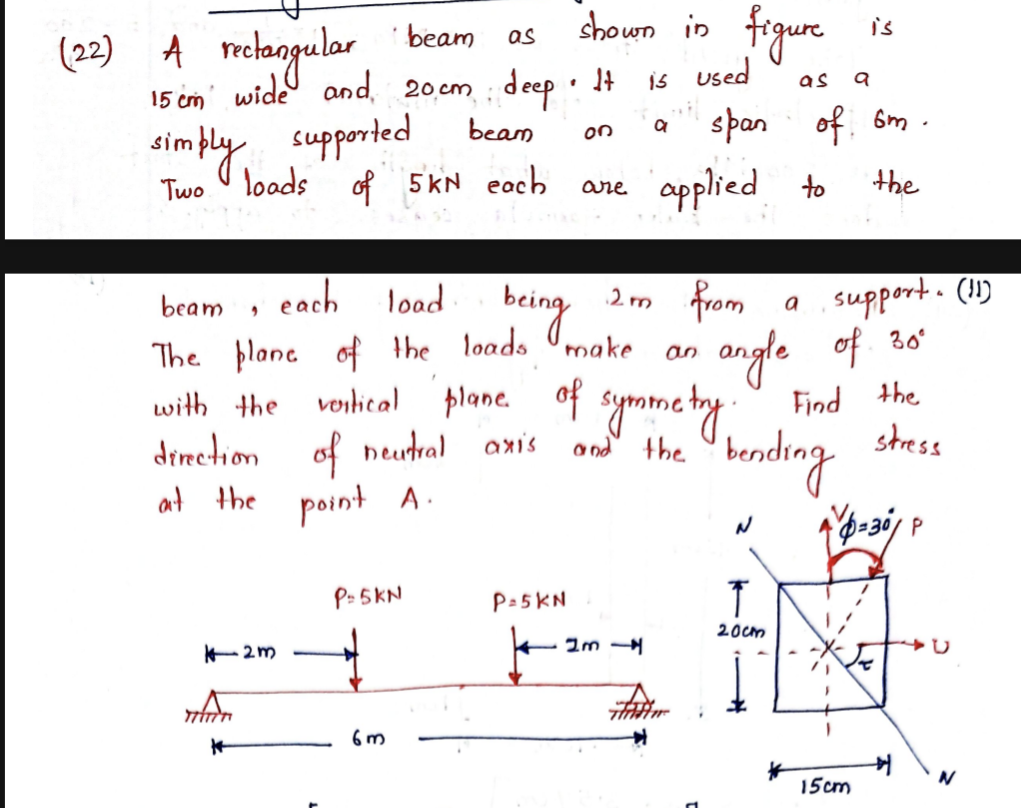 (22) A rectangular beam as shown in figure is
15 cm wide and 20 cm deep. It is used as a
simply supported beam on a span of 6m.
Two loads of 5 kN each are applied to the
beam, each load being 2m from a support. (11)
The plane of the loads make an angle of 30°
with the vertical plane of symmetry. Find the
direction of neutral axis and the bending stress
at the point A.
N V ϕ=30° P
P=5KN P=5KN
20cm
2m 2m
U
τ
6m
15cm N